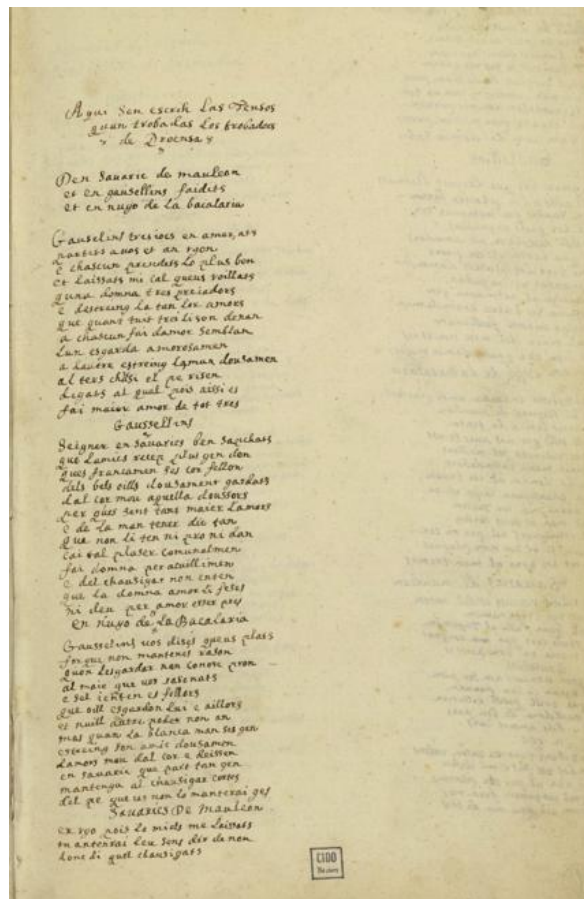 Aqui Sen escrih Las Tensos
quan trobadas Los trobadors
de Proensa
Den Savaric de mauleon
et en gausellins faidits
et en nugo de La bacalaria
Gauselins tres iocs en amorats
partirs avos et an ugon
e chascun prendets Lo plus bon
et Laissats mi cal queus voillats
quna domna tres preiadors
e destreing La tan Lor amors
que quant tuit trei Li son denan
a chascun fai damor semblan
Lun esgarda amorosamen
a Lautre estreing La man dousamen
al ters chasi el pe risen
digats al qual pois aissi es
fai maior amor de tot tres
Gaussellins
Seigner en Savarics ben sapchats
que Lamics recep plus gen don
ques francamen ses cor fellon
dels bels oills dousament gardats
dal cor mou aquella doussors
per ques sent tans maier Lamors
e de La man tener dic tan
que non Li ten ni pro ni dan
cai tal plaser comunalmen
fai domna per acuillimen
e del chausigar non enten
que La domna amor Li feses
ni deu per amor esser pres
en nugo de La Bacalaria
Gausselins vos dises queus plats
for que non mantenes rason
quon Lesgardar non conosc pron
al maic que vos rasonats
e sel i enten es follors
que oill esgardon Lui e aillors
et nuill autre poder non an
mas quan La blanca man ses gen
estreing son amic dousamen
Lamors mou dal cor e deissen
en savaric que part tan gen
mantenga al chausigar cortes
del pe que ieu non Lo manterai ges
Savarics De Mauleon
en ugo pois Lo miels me Laissats
mantenrai Leu sens dir de non
donc di quel chausigats
CIDO